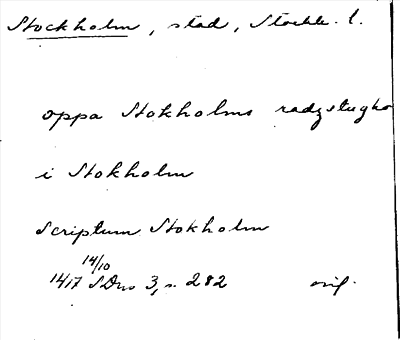 Stockholm, stad, Stockh. l.
oppa Stokholms radzstugho
i Stokholm
Scriptum Stokholm
14/10
1417 SDns 3, s. 282 orig.